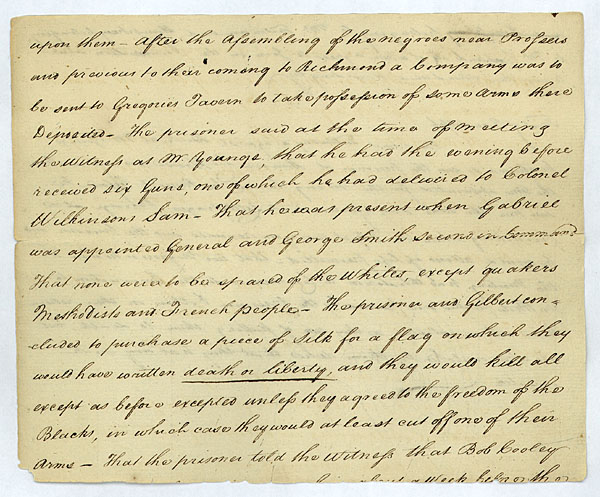 upon them – After the Assembling of the negroes near Prossers
and previous to their coming to Richmond a Company was to
be sent to Gregories Tavern to take possession of some Arms there
Deposited – The prisoner said at the time of meeting
the Witness at Mr. Youngs, that he had the evening before
received six Guns, one of which he had delivered to Colonel
Wilkinsons Sam – That he was present when Gabriel
was appointed General and George Smith second in Command.
That none were to be spared of the Whites, except quakers
Methodists and French people – The prisoner and Gilbert con-
cluded to purchase a piece of silk for a flag on which they
would have written death or liberty, and they would kill all
except as before excepted unless they agreed to the freedom of the
Blacks, in which case they would at least cut off one of their
Arms – That the prisoner told the Witness that Bob Cooley
about a Week before the